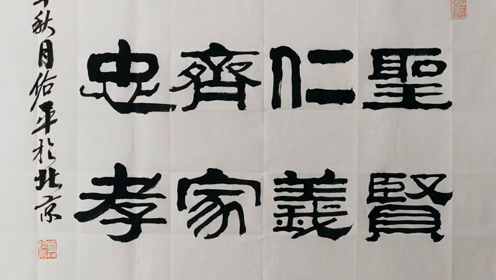 聖賢
仁義
齊家
忠孝
秋月於北京